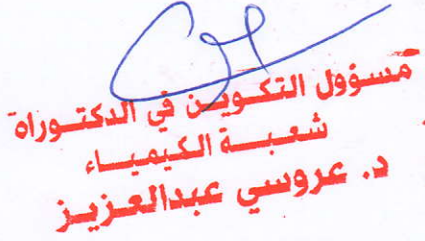 مسؤول التكويـن في الدكتـوراه
شعبـة الكيميـاء
د. عروسي عبدالعزيز